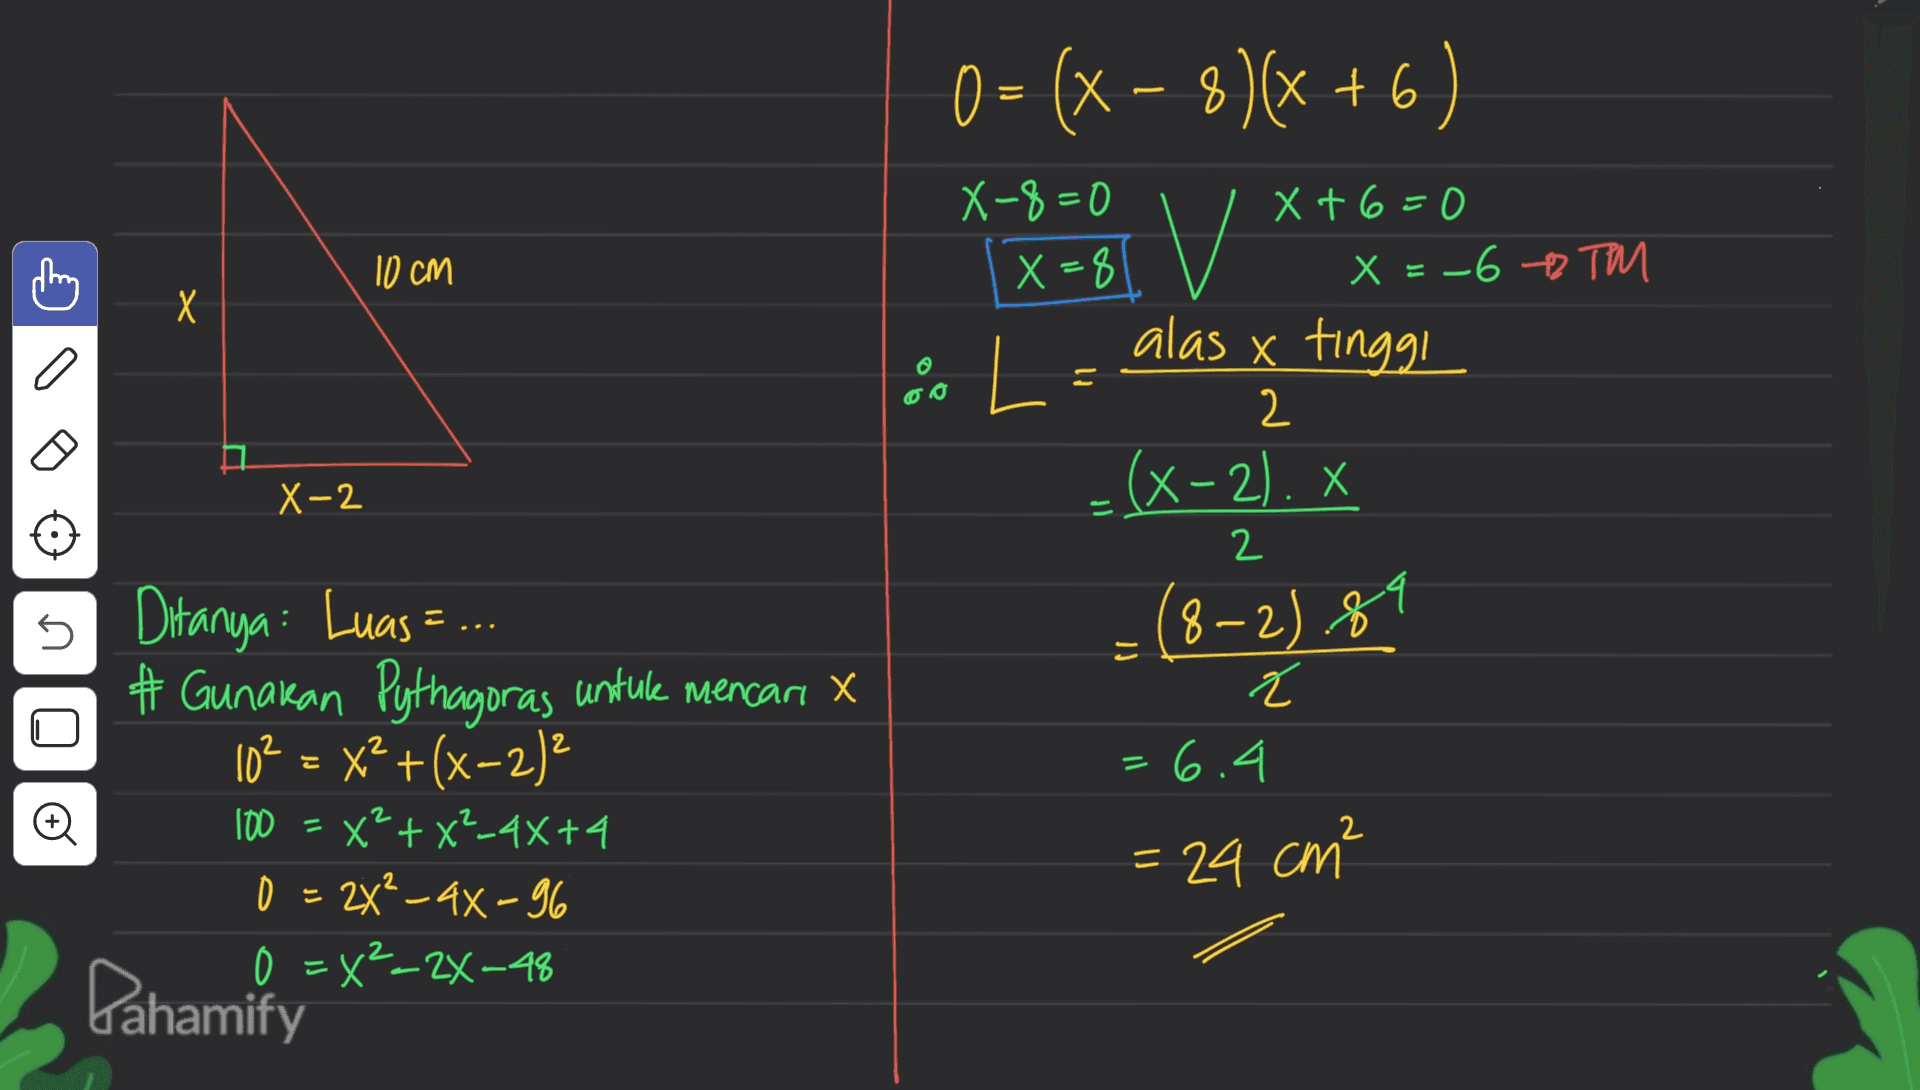 x
10 cm
x-2
Ditanya: Luas = ...
# Gunakan Pythagoras untuk mencari x
10² = x² + (x-2)²
100 = x² + x² - 4x + 4
0 = 2x² - 4x - 96
0 = x² - 2x - 48
Pahamify
0 = (x - 8)(x + 6)
x-8=0 V x+6=0
x=8 x = -6 → TM
∴ L = alas x tinggi
2
= (x-2). x
2
= (8-2) . 8 4
2
= 6.4
= 24 cm²